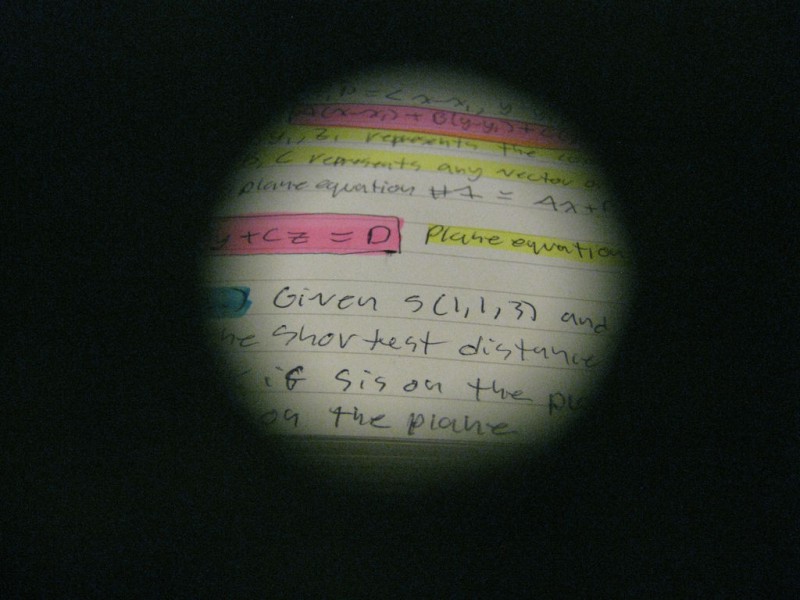 A(x-x₁) + B(y-y₁) + C(
y₁, z₁ represents the
C represents any vector
plane equation = Ax+
y + Cz = D Plane equation
Given S(1,1,3) and
he shortest distance
if S is on the
on the plane